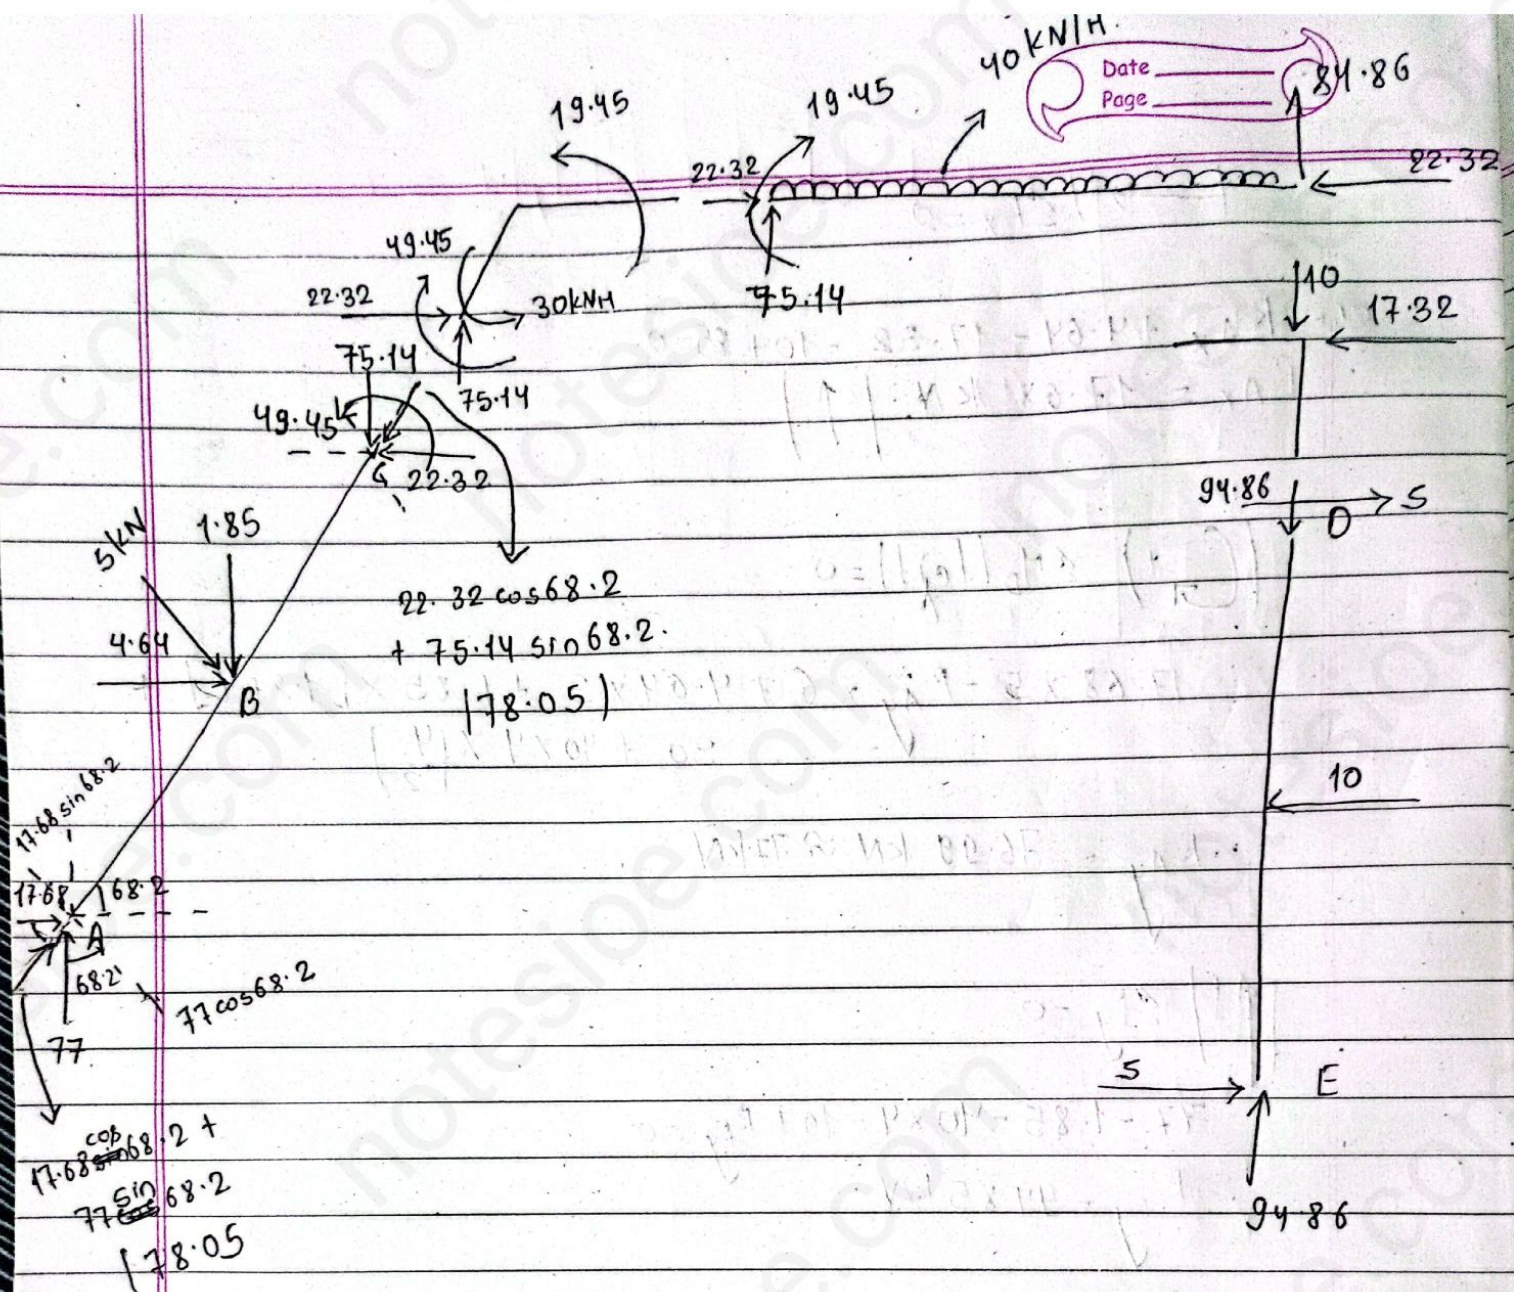 40 kN/H.
Date
Page
84.86
19.45
19.45
22.32
22.32
49.45
22.32
30kNH
75.14
10
17.32
75.14
75.14
49.45
C
22.32
94.86
5
D
5kN
1.85
22.32 cos68.2
+ 75.14 sin68.2.
|78.05|
4.64
B
10
17.68 sin68.2
17.68
68.2
A
68.2
77cos68.2
77
5
E
17.68 cos 68.2 +
77 sin 68.2
|78.05
94.86
notesioe.com